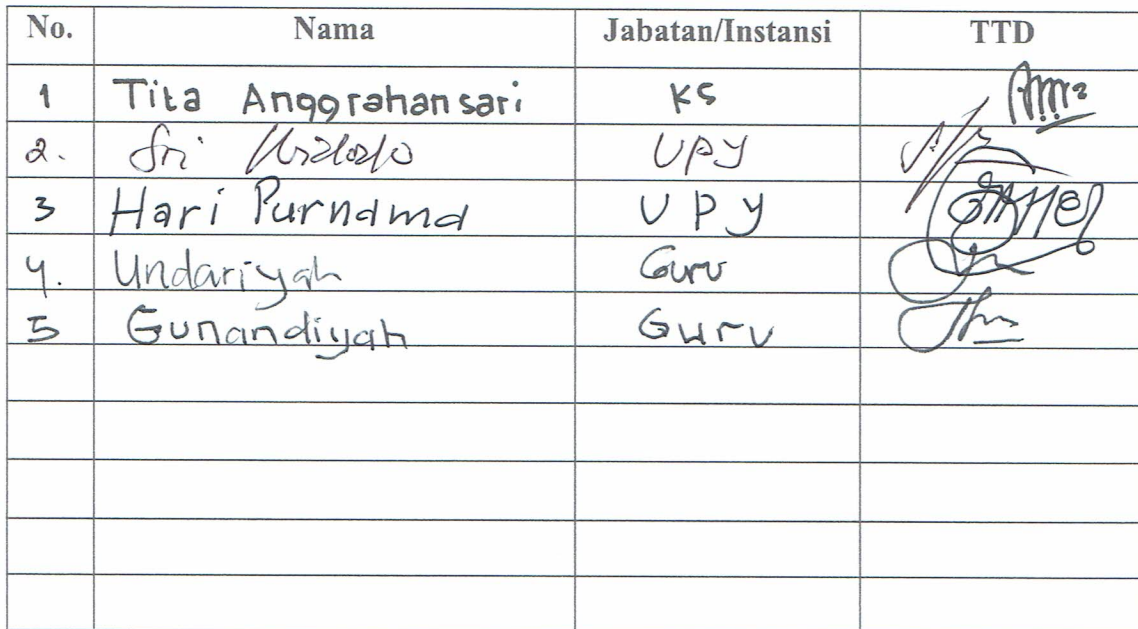 No. Nama Jabatan/Instansi TTD
1 Tita Anggrahansari KS
2. Sri UPY
3 Hari Purnama UPY
4. Undariyah Guru
5 Gunandiyah Guru